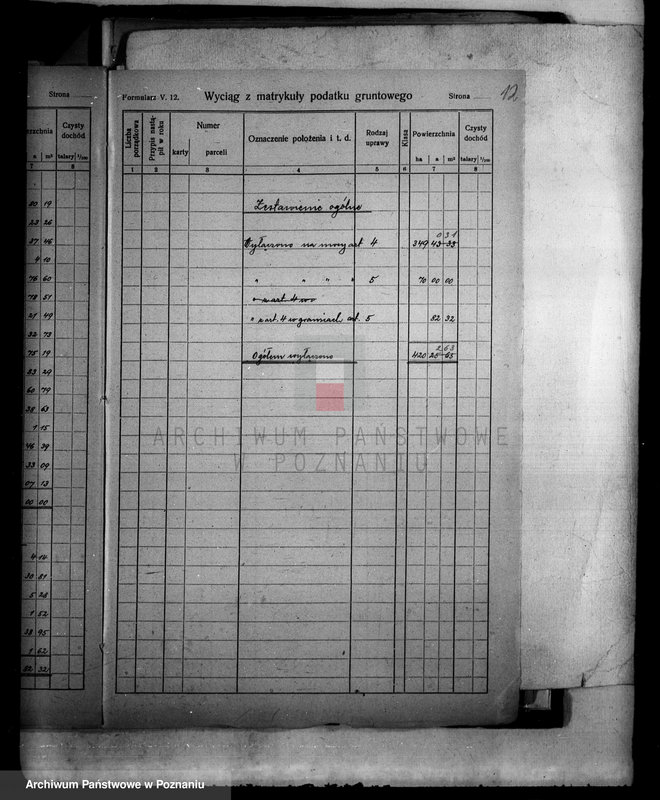 Strona
Czysty dochód
a m² talary 1/100
7 8
80 19
23 26
37 46
4 10
76 60
78 51
21 49
32 73
75 19
83 29
60 79
38 63
1 15
46 39
33 09
07 13
00 00
4 14
30 81
5 28
1 52
38 95
1 62
82 32
Formularz V. 12. Wyciąg z matrykuły podatku gruntowego Strona 12
Liczba porządkowa
Przypis nastąpił w roku
Numer
karty parceli
Oznaczenie położenia i t. d.
Rodzaj uprawy
Klasa
Powierzchnia
ha a m²
Czysty dochód
talary 1/100
1 2 3 4 5 6 7 8
Zestawienie ogólne
0 31
Wyłączono na mocy art 4 349 43 33
" " " " 5 70 00 00
" z art. 4 w granicach art. 5 82 32
2 63
Ogółem wyłączono 420 25 65
ARCHIWUM PAŃSTWOWE
W POZNANIU
Archiwum Państwowe w Poznaniu